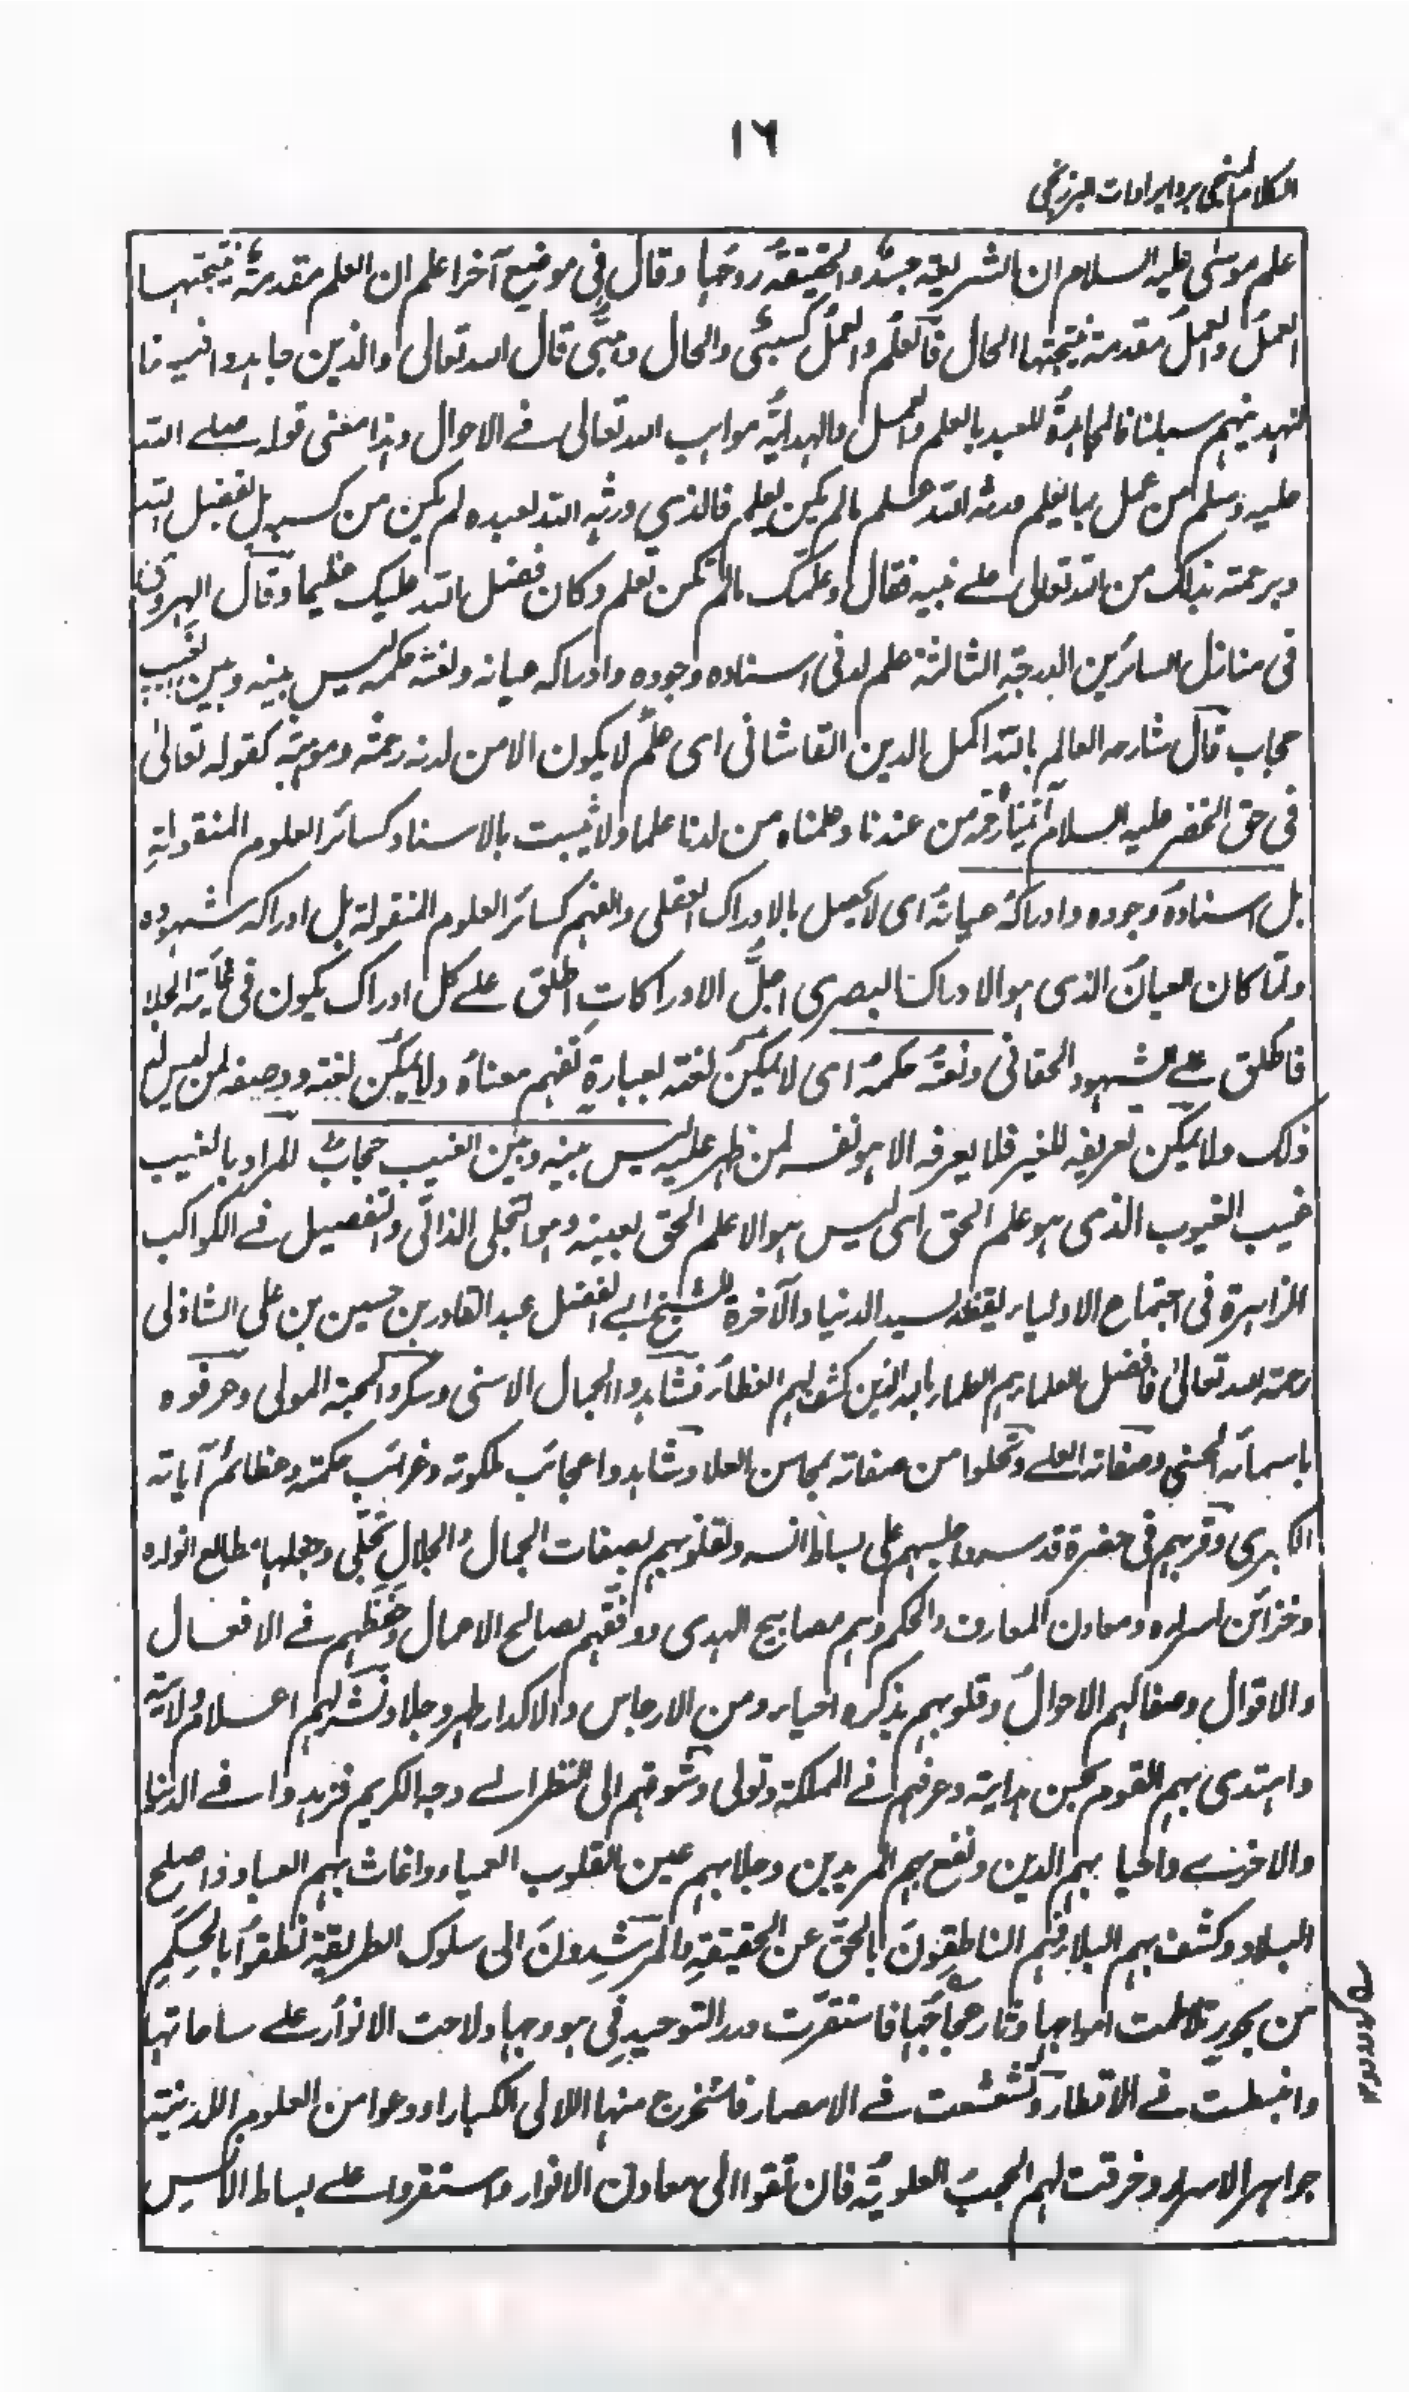 ١٦
الكلام المنجي برد ايرادات البرزنجي
علم موسى عليه السلام ان الشريعة جسد والحقيقة روحها وقال في موضع آخر اعلم ان العلم مقدمة نتيجتها
العمل والعمل مقدمة نتيجتها الحال فالعلم والعمل كسبي والحال وهبي قال الله تعالى والذين جاهدوا فينا
لنهدينهم سبلنا فالمجاهدة للعبد بالعلم والعمل والهداية مواهب الله تعالى في الاحوال وهذا معنى قوله صلى الله
عليه وسلم من عمل بما يعلم ورثه الله علم ما لم يكن يعلم فالذي ورثه الله لعبده لم يكن من كسبه بل بفضل الله
وبرحمته بذلك من الله تعالى على نبيه فقال وعلمك ما لم تكن تعلم وكان فضل الله عليك عظيما وقال الهروي
في منازل السائرين الدرجة الثالثة علم لدني اسناده وجوده وادراكه عيانه ونعته حكمه ليس بينه وبين الغيب
حجاب قال شارحه العالم بالله اكمل الدين القاشاني اي علم لا يكون الا من لدنه رحمة وموهبة كقوله تعالى
في حق الخضر عليه السلام آتيناه رحمة من عندنا وعلمناه من لدنا علما ولا يثبت بالاسناد كسائر العلوم المنقولة
بل اسناده وجوده وادراكه عيانه اي لا يحصل بالادراك العقلي والفهم كسائر العلوم المنقولة بل ادراكه شهوده
ولما كان العيان الذي هو الادراك البصري اجل الادراكات اطلق على كل ادراك يكون في غاية الجلا
فاطلق على الشهود الحقاني ونعته حكمه اي لا يمكن نعته بعبارة تفهم معناه ولا يمكن نعته ووصفه لمن ليس له
ذلك ولا يمكن تعريفه للغير فلا يعرفه الا هو نفسه لمن ظهر عليه ليس بينه وبين الغيب حجاب المراد بالغيب
غيب الغيوب الذي هو علم الحق اي ليس هو الا علم الحق بعينه وهو التجلي الذاتي والتفصيل في الكواكب
الزاهرة في اجتماع الاولياء يقظة بسيد الدنيا والآخرة للشيخ ابي الفضل عبد القادر بن حسين بن علي الشاذلي
رحمة الله تعالى فافضل العلماء هم العلماء بالله الذين كشف لهم الغطاء فشاهدوا الجمال الاسنى وسكروا لمحبة المولى وعرفوه
باسمائه الحسنى وصفاته العلى وتحلوا من صفاته بمحاسن العلا وشاهدوا عجائب ملكوته وغرائب حكمته وعظائم آياته
الكبرى وقربهم في حضرة قدسه واجلسهم على بساط انسه ولقلوبهم بصفات الجمال والجلال تجلى وجعلها مطالع انواره
وخزائن اسراره ومعادن المعارف والحكم وهم مصابيح الهدى ووفقهم لصالح الاعمال وحفظهم في الافعال
والاقوال وصفا لهم الاحوال وقلوبهم بذكره احياء ومن الارجاس والاكدار طهر وجلا ونشر لهم اعلام ولايته
واهتدى بهم القوم بحسن هدايته وعرفهم في المملكة وتولى وشوقهم الى النظر الى وجهه الكريم فزهدوا في الدنيا
والاخرى واحيا بهم الدين ونفع بهم المريدين وجلا بهم عين القلوب العمياء واغاث بهم العباد واصلح
البلاد وكشف بهم البلاء فهم الناطقون بالحق عن الحقيقة والمرشدون الى سلوك الطريقة نطقوا بالحكم
من بحور تلاطمت امواجها وثار عجاجها فاستقرت درر التوحيد في هودجها ولاحت الانوار على ساحاتها
وانبسطت في الاقطار وتشعشعت في الامصار فاستخرج منها اللالى الكبار اودعوا من العلوم اللدنية
جواهر الاسرار وخرقت لهم الحجب العلوية فان تقوا الى معادن الانوار واستقروا على بساط الانس